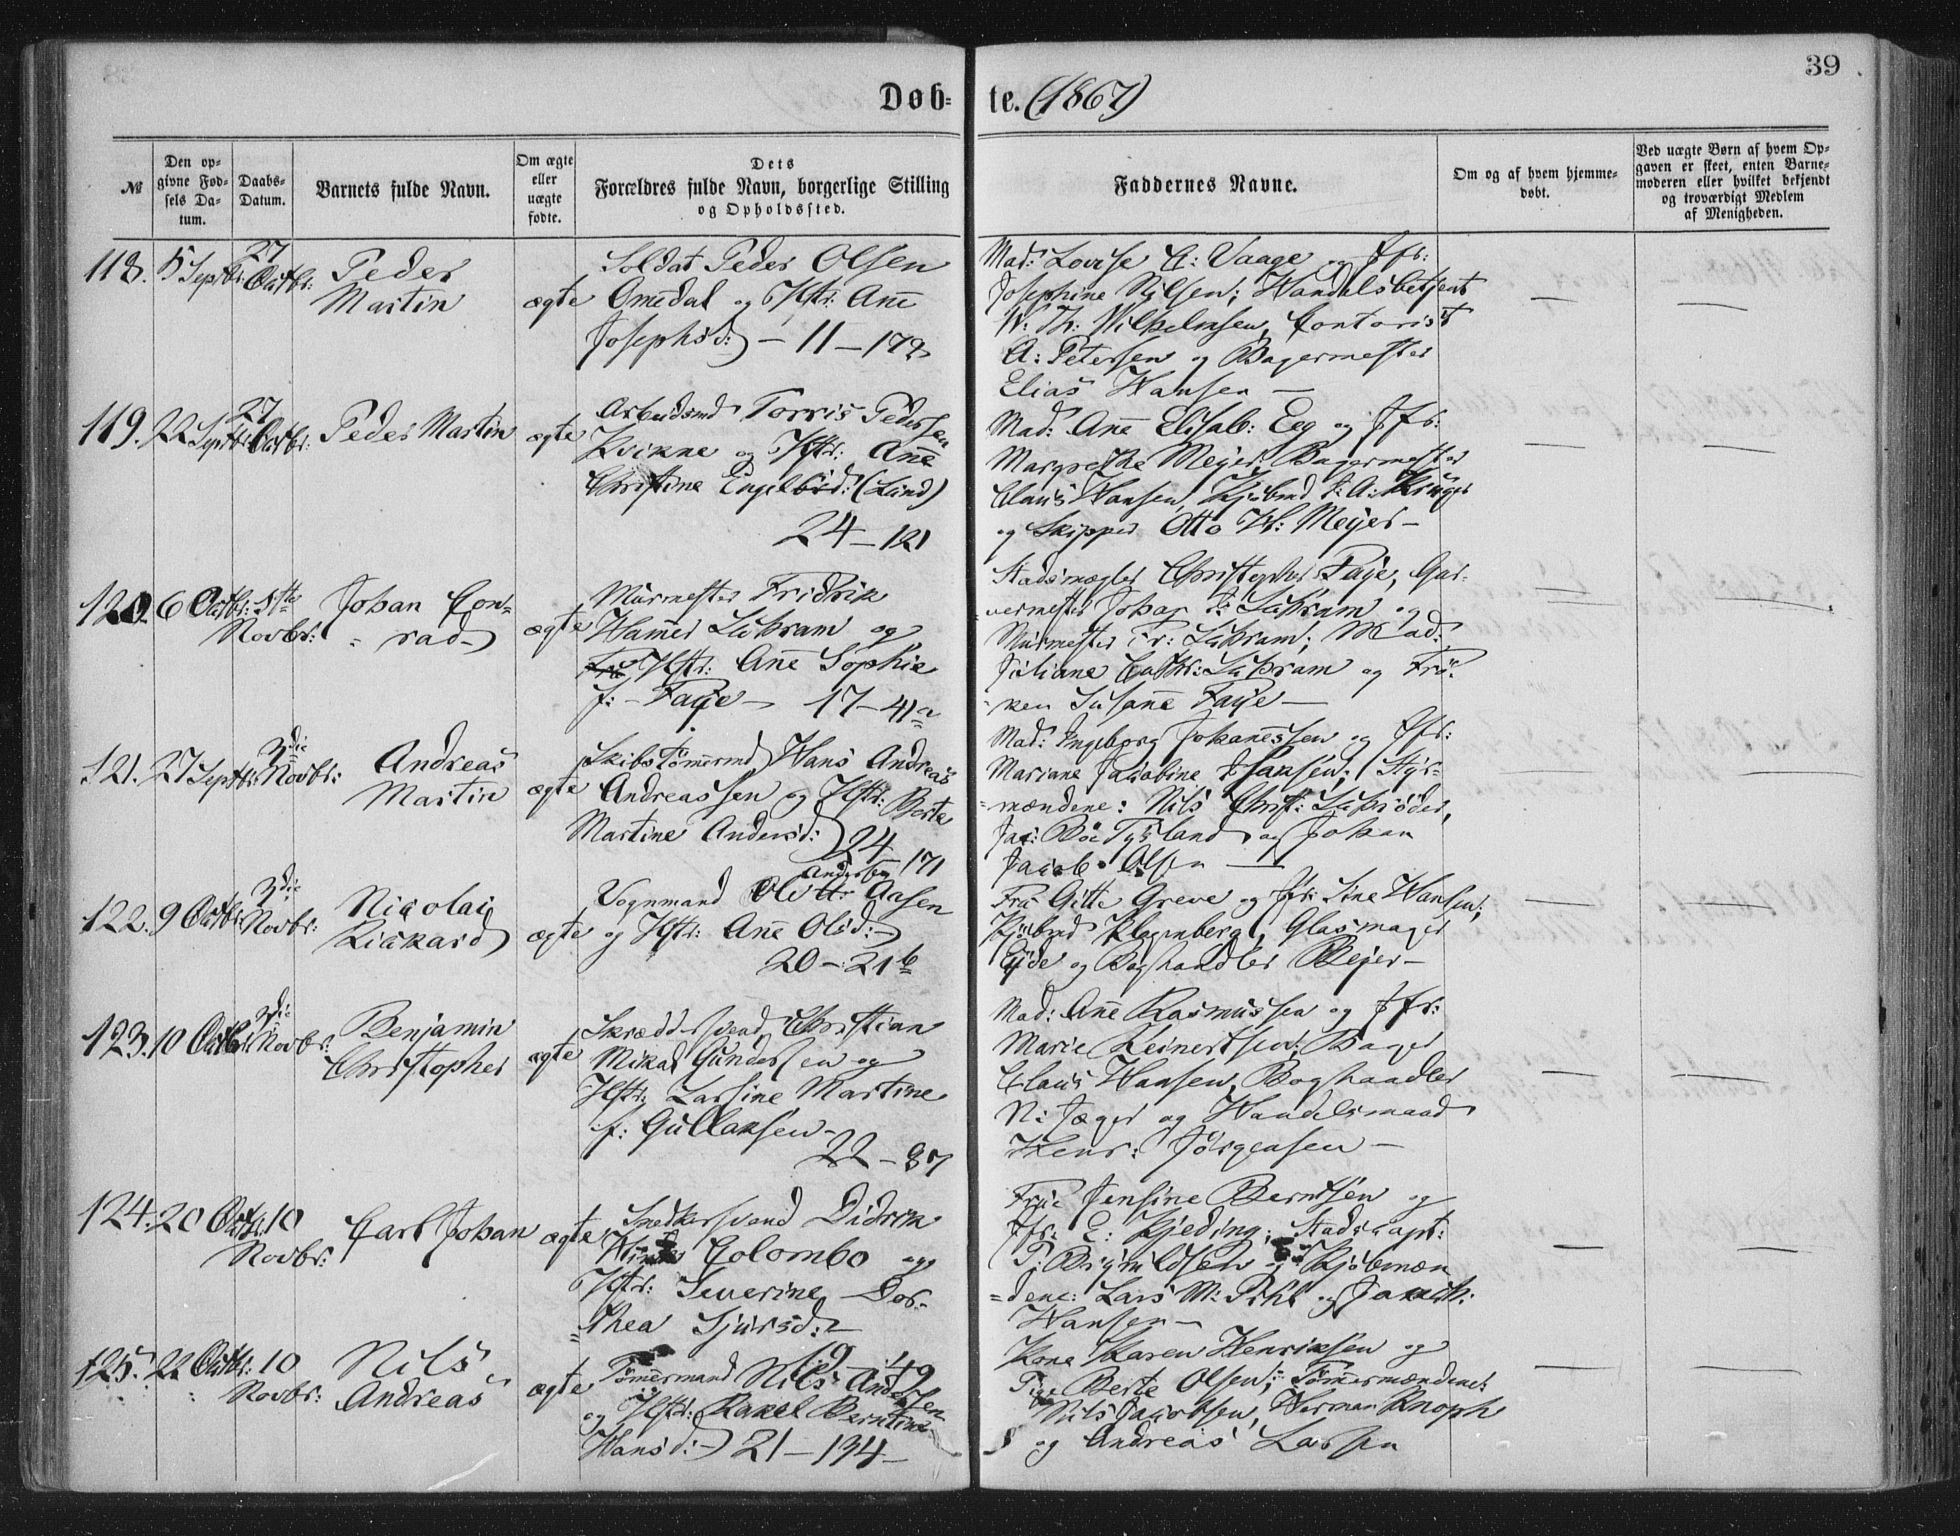 39
Døb-te. (1867)
№
Den opgivne Fødsels Datum.
Daabs-Datum.
Barnets fulde Navn.
Om ægte eller uægte fødte.
Dets Forældres fulde Navn, borgerlige Stilling og Opholdssted.
Faddernes Navne.
Om og af hvem hjemmedøbt.
Ved uægte Børn af hvem Opgaven er skeet, enten Barnemoderen eller hvilket bekjendt og troværdigt Medlem af Menigheden.
118. 5 Septbr: 27 Octbr: Peder Martin ægte
Soldat Peder Olsen
Omdal og Hstr: Ane
Josephsd: – 11 – 172
Mad: Lovise E: Vaage og Jfr:
Josephine Nilsen; Handelsbetjent
W: Th: Wilhelmsen, Contorist
A: Petersen og Bagermester
Elias Hansen –
119. 22 Septbr: 27 Octbr: Peder Martin ægte
Arbeidsmd Torris Pedersen
Kvikne og Hstr: Ane
Christine Engelbrd: (Lind)
24 – 121
Mad: Ane Elisab: Eeg og Jfr:
Margrethe Meyer, Bagermester
Claus Hansen, Kjøbmd J: A: Krüger
og Skipper Otto W: Meyer –
120. 6 Octbr: 1ste Novbr: Johan Con-rad ægte
Murmester Fridrik
Hamer Lütram og
Hstr: Ane Sophie
f: – Faye – 17 – 41a
Stadsmægler Christopher Faye, Gar-
vermester Johan F: Lütram og
Murmester Fr: Lütram; Mad:
Juliane Cath: Lütram og Frø-
ken Susane Faye –
121. 27 Septbr: 3die Novbr: Andreas Martin ægte
Skibstømermd Hans Andreas
Andreassen og Hstr: Berte
Martine Andersd: 24 – 171
Mad: Ingeborg Johanessen og Jfr:
Mariane Jakobine Hansen; Styr-
mændene: Nils Christ: Schrøder,
Jac: Bøe Tysland og Johan
Jacob Olsen –
122. 9 Octbr: 3die Novbr: Nicolai Rickard ægte
Vognmand Ole Andersen Aasen
og Hstr: Ane Olsd:
20 – 21b
Fru Gitte Greve og Jfr: Sine Hansen;
Kjøbmd Klagenberg, Glasmager
Eide og Boghandler Beyer –
123. 10 Octbr: 3die Novbr: Benjamin Christopher ægte
Skrædersvend Christian
Mikal Gundersen og
Hstr: Larsine Martine
f: Gullaksen –
22 – 87
Mad: Ane Rasmussen og Jfr:
Marie Reinertsen; Bager
Claus Hansen, Boghandler
N: Jæger og Handelsmand
Henr: Jørgensen –
124. 20 Octbr: 10 Novbr: Carl Johan ægte
Snedkersvend Didrik
Colombo og
Hstr: Severine Dor-
thea Sjursd:
19 – 49
Frue Jensine Berntsen og
Jfr: E: Kjeding; Stadscapt:
P: Brynildsen og Kjøbmæn
dene: Lars M: Pihl og
Hansen –
125. 22 Octbr: 10 Novbr: Nils Andreas ægte
Tømermand Nils Andersen
og Hstr: Rakel Berntine
Hansd: 21 – 134 –
Kone Karen Henriksen og
Pige Berte Olsen; Tømermændene:
Nils Jacobsen, Herman Knoph
og Andreas Larsen